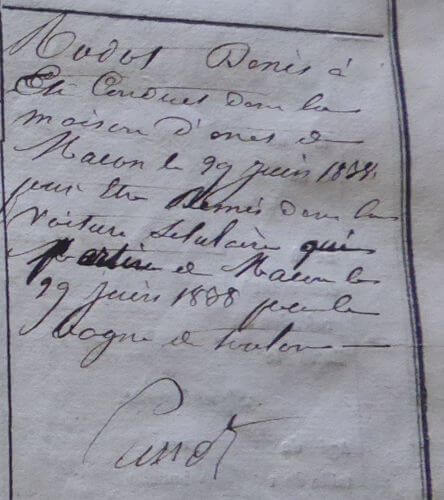 Rodot Denis à
Eté Conduit dans la
maison d'aret de
Macon le 29 juin 1838
pour Etre Remis dans la
Voiture Selulaire qui
Partira de Macon le
29 juin 1838 pour le
bagne de toulon